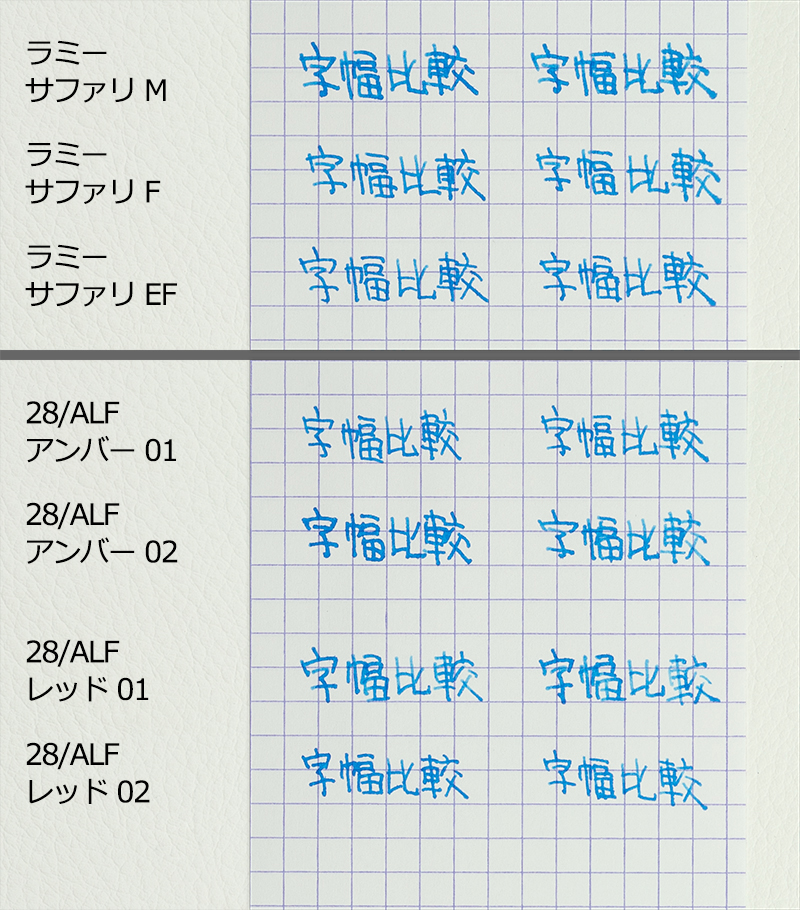 ラミー
サファリ M
字幅比較 字幅比較
ラミー
サファリ F
字幅比較 字幅比較
ラミー
サファリ EF
字幅比較 字幅比較
28/ALF
アンバー 01
字幅比較 字幅比較
28/ALF
アンバー 02
字幅比較 字幅比較
28/ALF
レッド 01
字幅比較 字幅比較
28/ALF
レッド 02
字幅比較 字幅比較